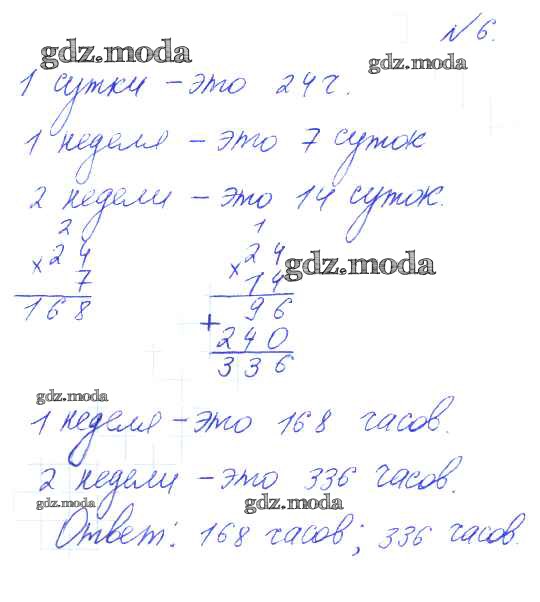 №6.
gdz.moda
gdz.moda
1 сутки – это 24 ч.
1 неделя – это 7 суток
2 недели – это 14 суток.
2 1
× 24 × 24 gdz.moda
7 14
168 96
+ 240
336
gdz.moda
1 неделя – это 168 часов.
2 недели – это 336 часов.
gdz.moda gdz.moda
Ответ: 168 часов; 336 часов.